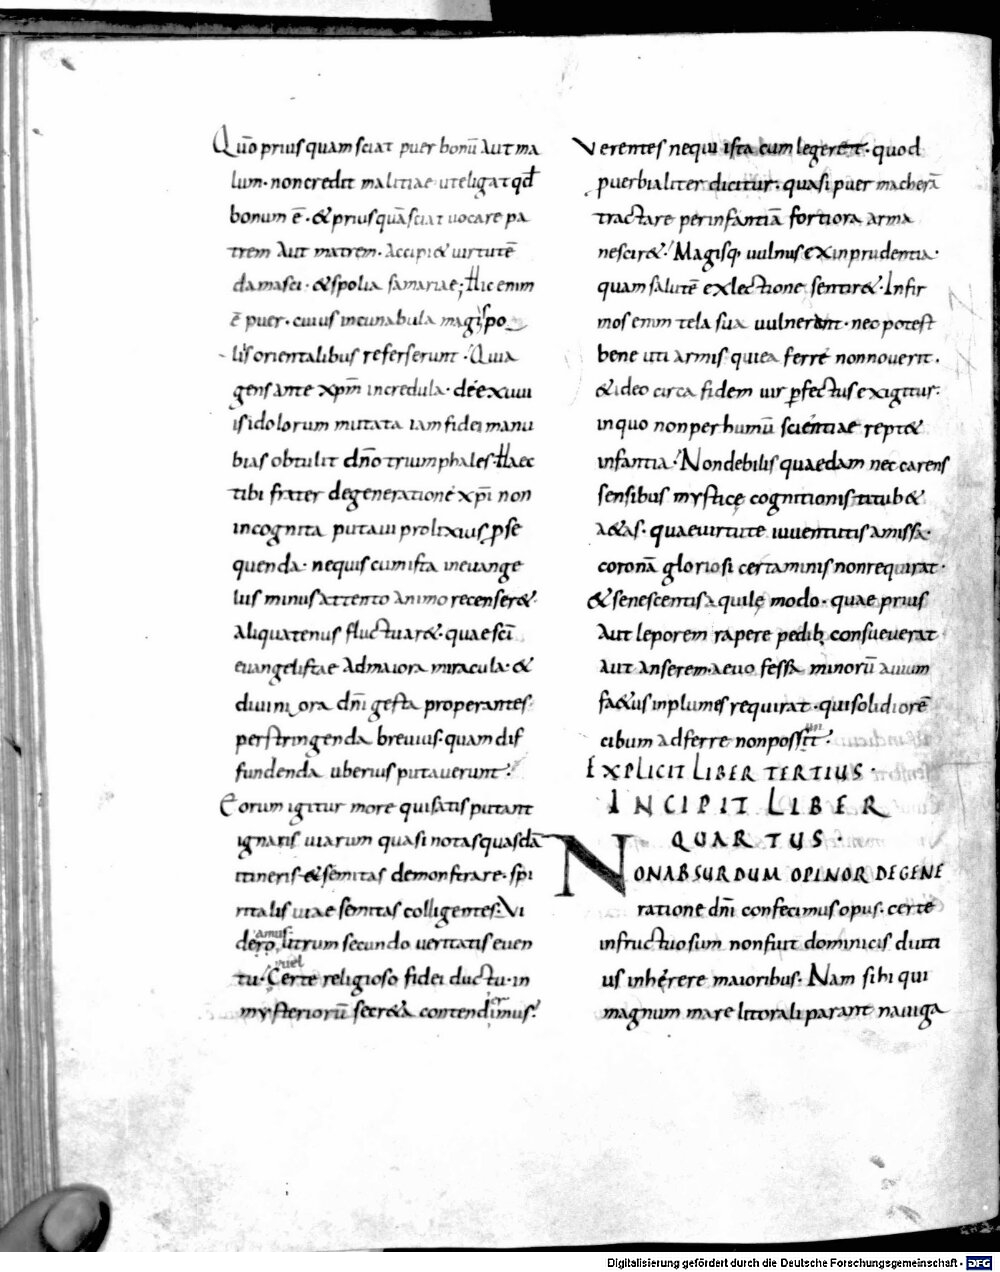 Quō prius quam sciat puer bonū aut ma
lum· non credit malitiae ut eligat qđ
bonum ē· & prius quā sciat uocare pa
trem aut matrem· Accipi& uirtutē
damasci· & spolia samariae; Hic enim
ē puer· cuius incunabula magi spo
liis orientalibus referserunt· Quia
gens ante xp̄m incredula· dee xuuii
is idolorum mutata iam fidei manu
bias obtulit dn̄o triumphales· Haec
tibi frater de generatione xp̄i non
incognita putaui prolixius ꝑse
quenda· nequis cum ista in euange
liis minus attento animo recenser&·
aliquatenus fluctuar&· quae sc̄i
euangelistae ad maiora miracula· &
diuiniora dn̄i gesta properantes·
perstringenda breuius· quam dif
fundenda uberius putauerunt·
Eorum igitur more qui satis putant
ignaris uiarum quasi notas quasdā
itineris· & semitas demonstrare· spi
ritalis uiae semitas colligentes· Vi
amus·
dero, litrum secundo ueritatis euen
uel
tu· Certe religioso fidei ductu· in
mysteriorū secr&a contendimus·
Verentes nequi ista cum legerent· quod
puerbialiter dicitur· quasi puer macherā
tractare per infantiā fortiora arma
nescir&· Magisq, uulnus ex inprudentia·
quam salutē ex lectione sentir&· Infir
mos enim tela sua uulnerant· nec potest
bene uti armis qui ea ferre non nouerit·
& ideo circa fidem uir ꝑfectus exigitur·
in quo non per humū scientiae rept&
infantia· Non debilis quaedam nec carens
sensibus mysticę cognitionis titub&
a&as· quae uirtute iuuentutis amissa·
coronā gloriosi certaminis non requirat·
& senescentis aquilę modo· quae prius
aut leporem rapere pedib, consueuerat
aut anserem· aeuo fessa minorū auium
fa&us inplumes requirat· qui solidiorē
cibum adferre non possit·
EXPLICIT LIBER TERTIUS·
INCIPIT LIBER
QUARTUS·
NON ABSURDUM OPINOR DE GENE
ratione dn̄i confecimus opus· certe
infructuosum non fuit dominicis diuti
us inhęrere maioribus· Nam sihi qui
magnum mare litorali parant nauiga
Digitalisierung gefördert durch die Deutsche Forschungsgemeinschaft - DFG